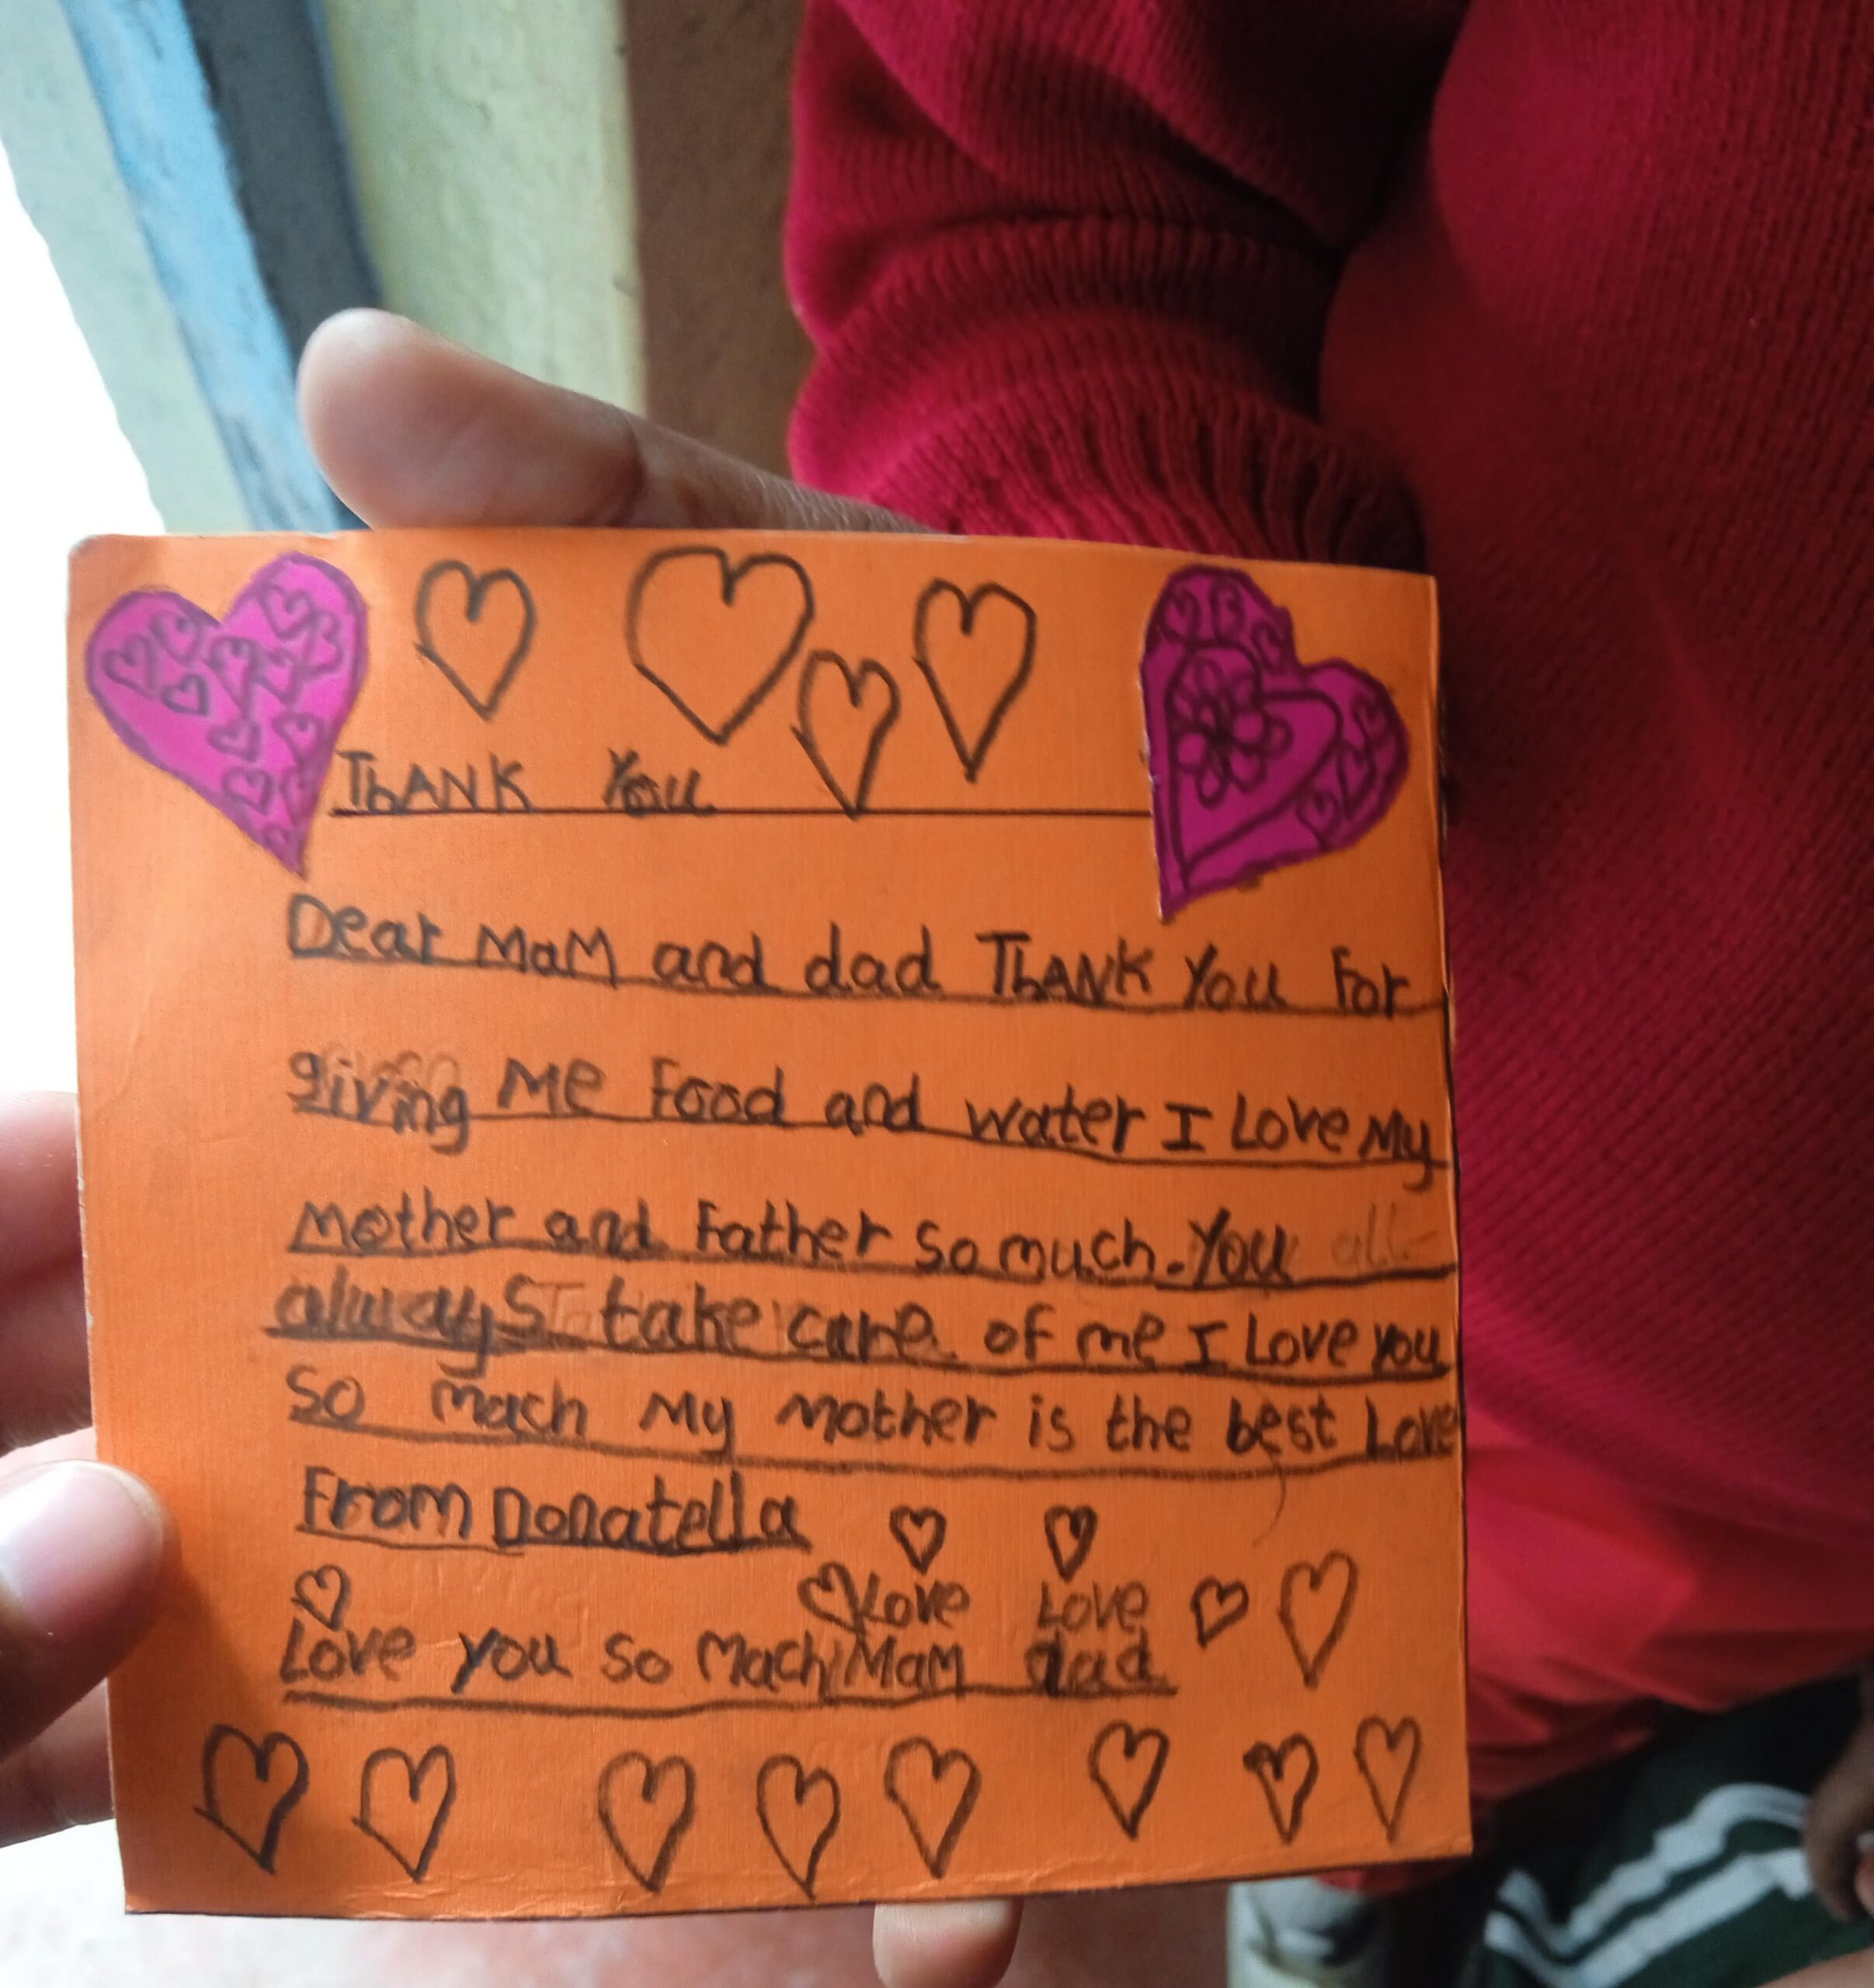 ThANK You
Dear MaM and dad ThANK You For
giving Me Food and water I Love My
Mother and Father So much. You
always take care of me I Love you
So mach My mother is the best Love
From Donatella
Love Love
Love you So Mach Mam dad